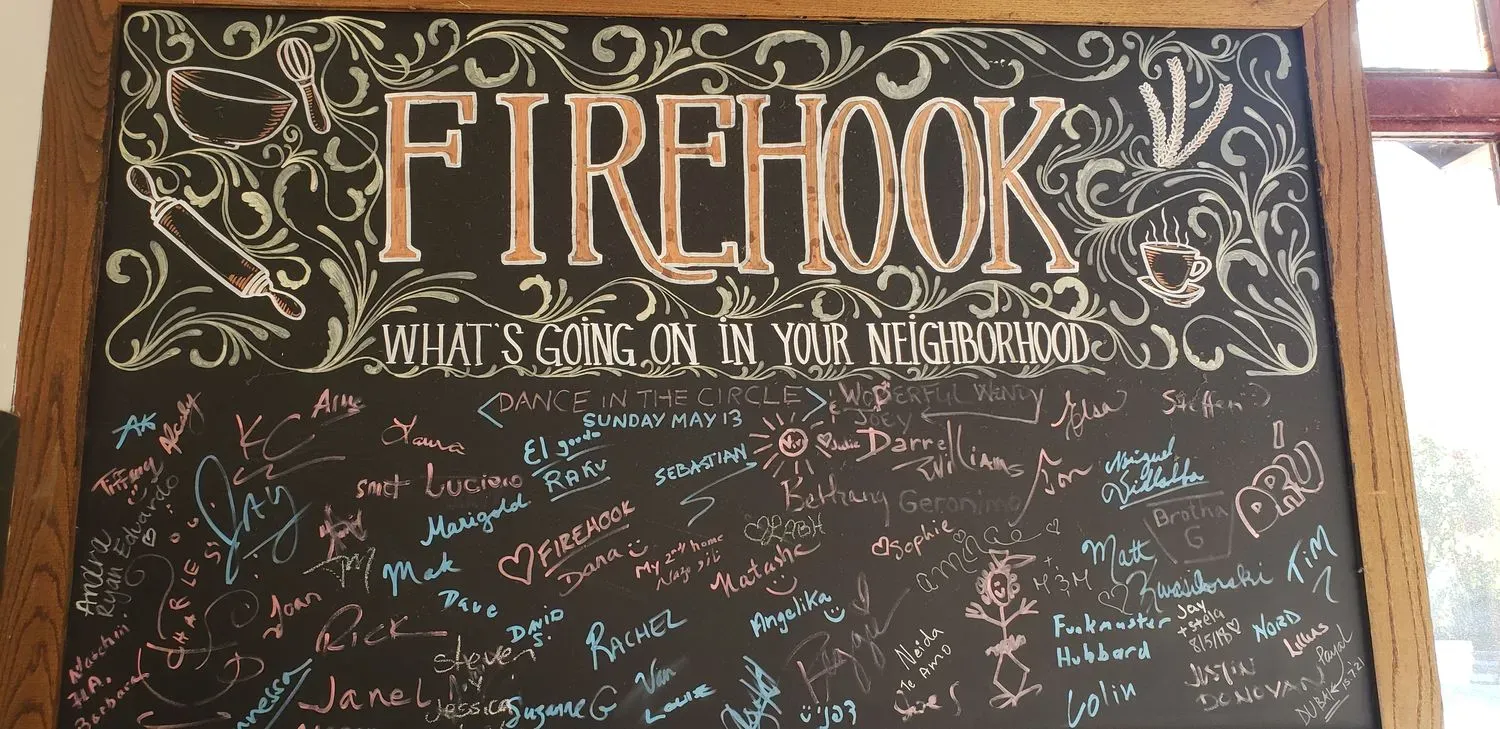 FIREHOOK
WHAT'S GOING ON IN YOUR NEIGHBORHOOD
DANCE IN THE CIRCLE
SUNDAY MAY 13
WONDERFUL WENDY
JOEY
Elsa
Steffen
AK
KC
Laura
El gordo
RAKU
SEBASTIAN
Julie
Darrell
Williams
Miguel
Tiffany
Eduardo
JAY
smit
Luciano
Marigold
Bethany
Geronimo
Brotha
G
DRU
Andra
Ryan
CHARLES
FIREHOOK
Dana
My 2nd home
Natasha
Sophie
Matt
TiM
Mak
Dave
DAVID
S.
Joan
RICK
RACHEL
Angelika
M+M
Kwasiborski
Funkmaster
Hubbard
Jay
+ Stela
8/5/18
NORD
Steven
Neida
Te Amo
H.A.
Barbara
Janel
Jessica
Suzanne G
Van
Louie
Colin
JUSTIN
DONOVAN
Payal
DUBAI
15.7.21